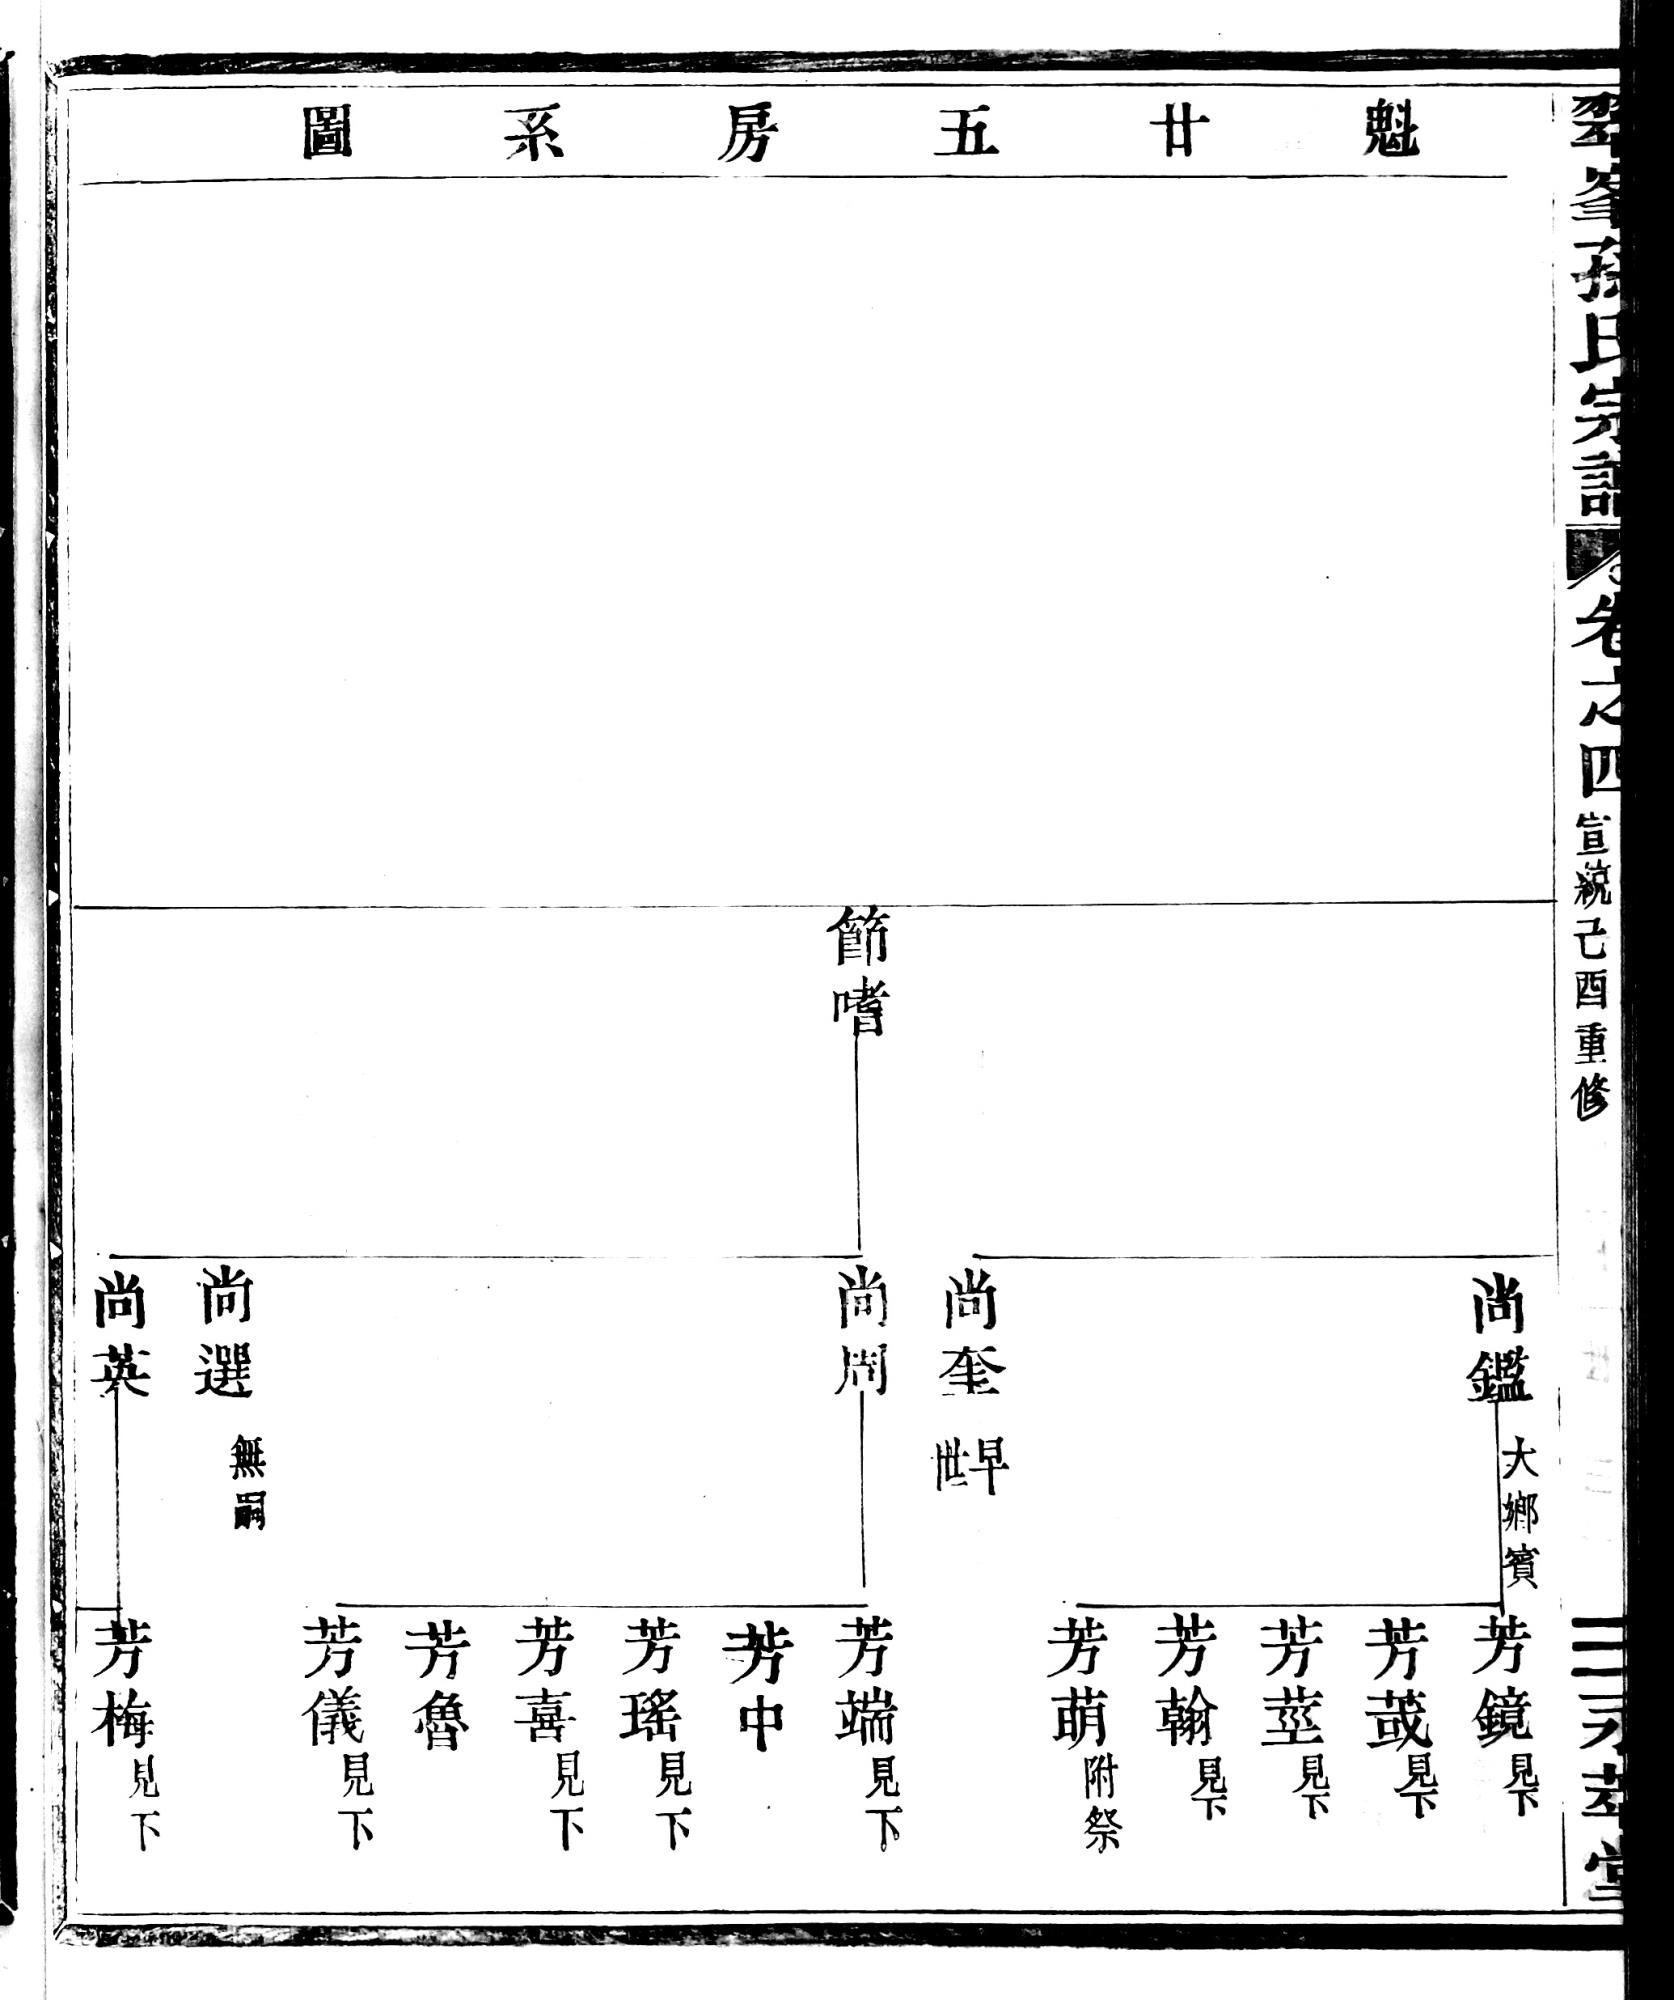 峯孫氏宗譜
卷之四
宣統己酉重修
萃堂
魁廿五房系圖
節嗜
尚鑑 大鄉賓
尚奎 早世
尚周
尚選 無嗣
尚英
芳鏡 見下
芳莪 見下
芳莖 見下
芳翰 見下
芳萌 附祭
芳端 見下
芳中
芳瑤 見下
芳喜 見下
芳魯
芳儀 見下
芳梅 見下